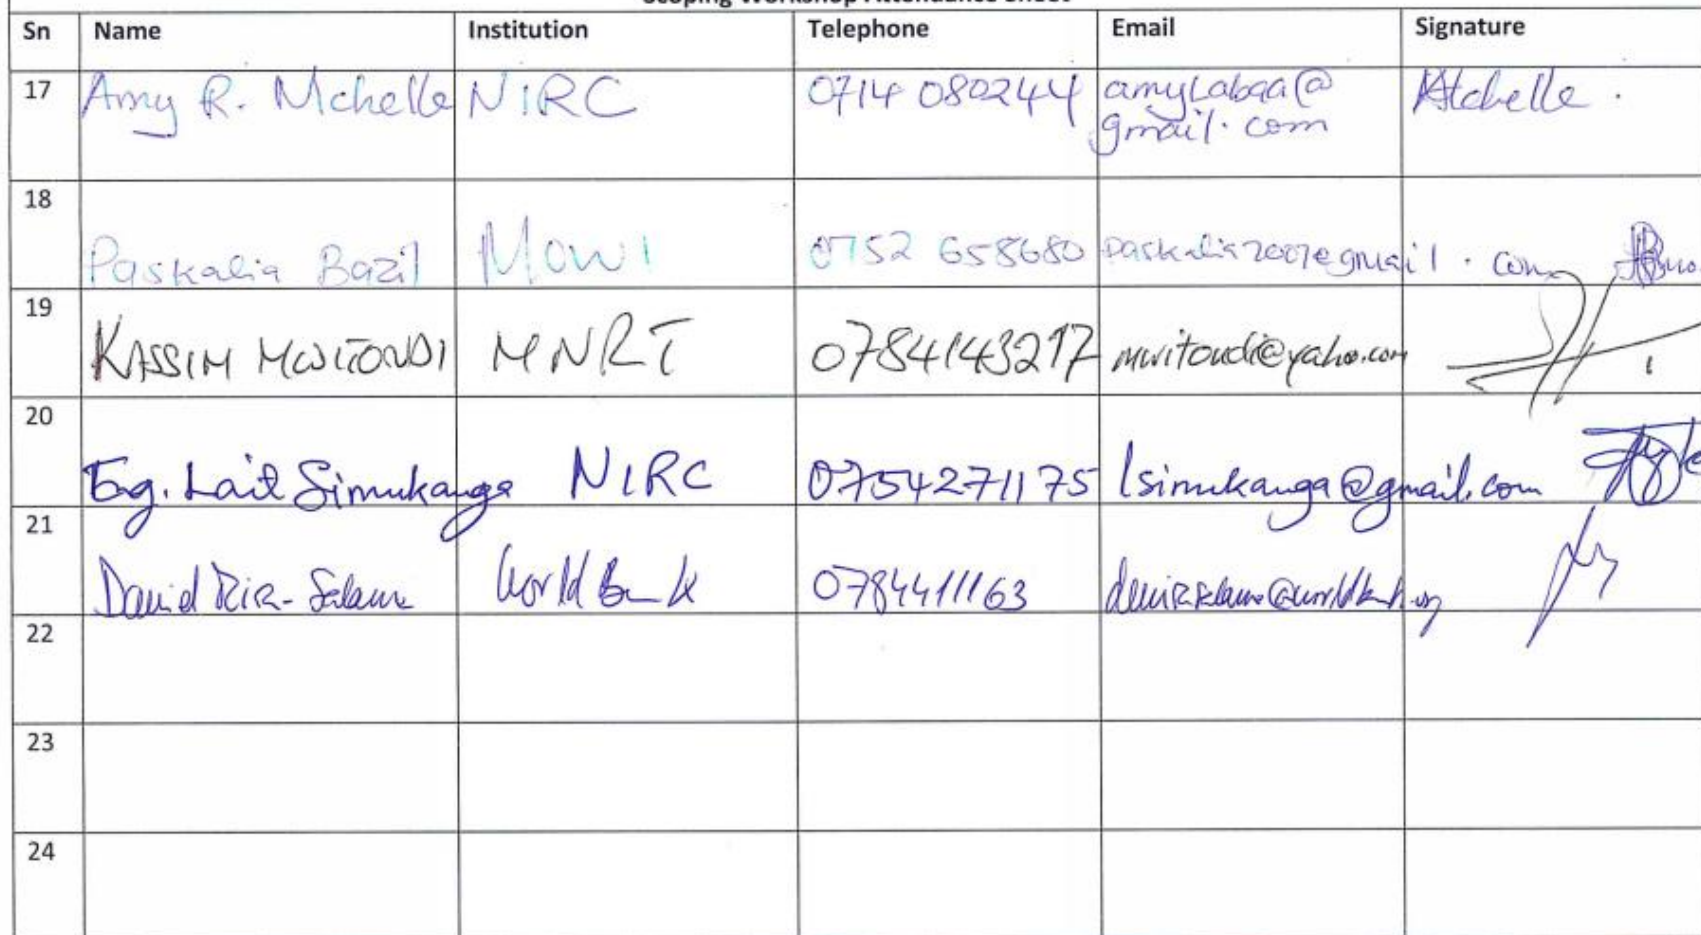 Scoping Workshop Attendance Sheet
Sn Name Institution Telephone Email Signature
17 Amy R. Mchelle NIRC 0714 080244 amylabaa@
gmail.com
18 Paskalia Bazil MOWI 0752 658680 paskalia2007@gmail.com
19 KASSIM MWITONDI MNRT 0784143217 mwitondi@yahoo.com
20 Eg. Lait Simukanga NIRC 0754271175 lsimukanga@gmail.com
21 David World Bank 0784411163
22
23
24